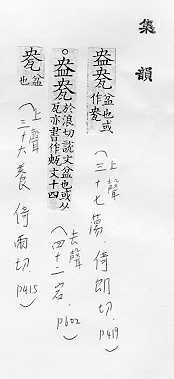 集韻
盎㼜 盆也或作㼜
(上聲
三十七蕩.倚朗切.p419)
。盎㼜 於浪切說文盆也或从瓦亦書作㼜文十四
(去聲
四十二宕.p602)
㼜 盆也
(上聲
三十六養倚兩切.p415)